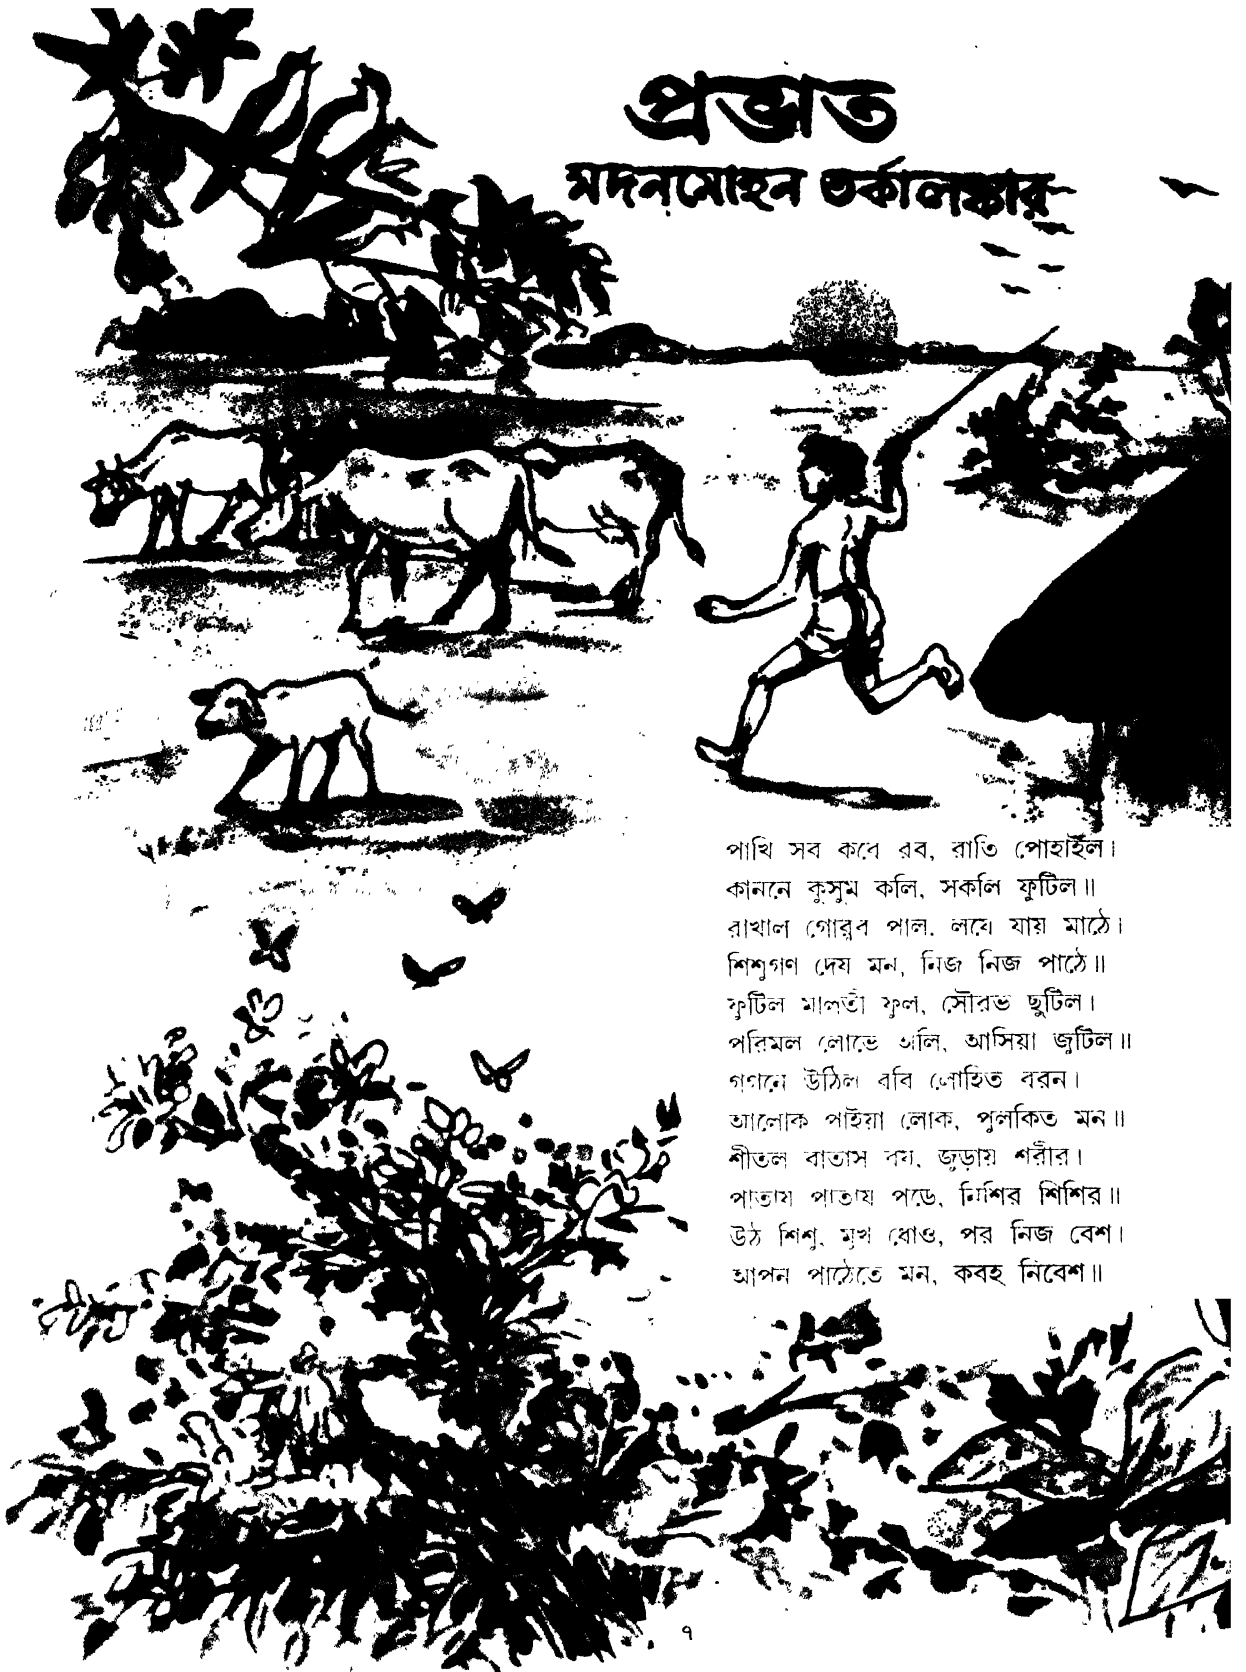 প্রভাত
মদনমোহন তর্কালঙ্কার
পাখি সব করে রব, রাতি পোহাইল।
কাননে কুসুম কলি, সকলি ফুটিল॥
রাখাল গোরুর পাল, লয়ে যায় মাঠে।
শিশুগণ দেয় মন, নিজ নিজ পাঠে॥
ফুটিল মালতী ফুল, সৌরভ ছুটিল।
পরিমল লোভে অলি, আসিয়া জুটিল॥
গগনে উঠিল রবি লোহিত বরন।
আলোক পাইয়া লোক, পুলকিত মন॥
শীতল বাতাস বয়, জুড়ায় শরীর।
পাতায় পাতায় পড়ে, নিশির শিশির॥
উঠ শিশু, মুখ ধোও, পর নিজ বেশ।
আপন পাঠেতে মন, করহ নিবেশ॥
৭